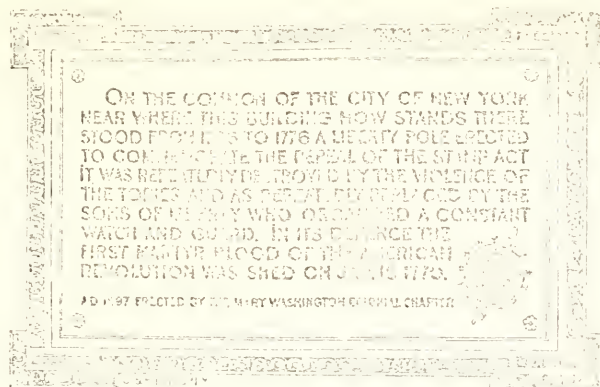 ON THE COMMON OF THE CITY OF NEW YORK
NEAR WHERE THIS BUILDING NOW STANDS THERE
STOOD FROM TO 1776 A LIBERTY POLE ERECTED
TO COMMEMORATE THE REPEAL OF THE STAMP ACT
IT WAS REPEATEDLY DESTROYED BY THE VIOLENCE OF
THE TORIES AND AS REPEATEDLY REPLACED BY THE
SONS OF LIBERTY WHO ORGANIZED A CONSTANT
WATCH AND GUARD. IN ITS DEFENCE THE
FIRST MARTYR BLOOD OF THE AMERICAN
REVOLUTION WAS SHED ON 1770.
A D 1897 ERECTED BY THE MARY WASHINGTON COLONIAL CHAPTER